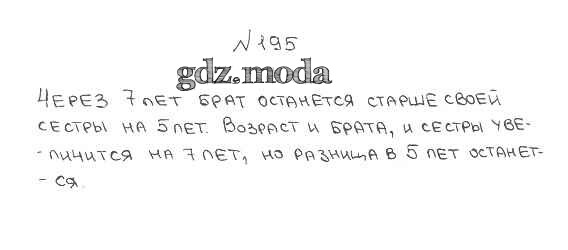 N 195
gdz.moda
Через 7 лет брат останется старше своей
сестры на 5 лет. Возраст и брата, и сестры уве-
- личится на 7 лет, но разница в 5 лет останет-
- ся.